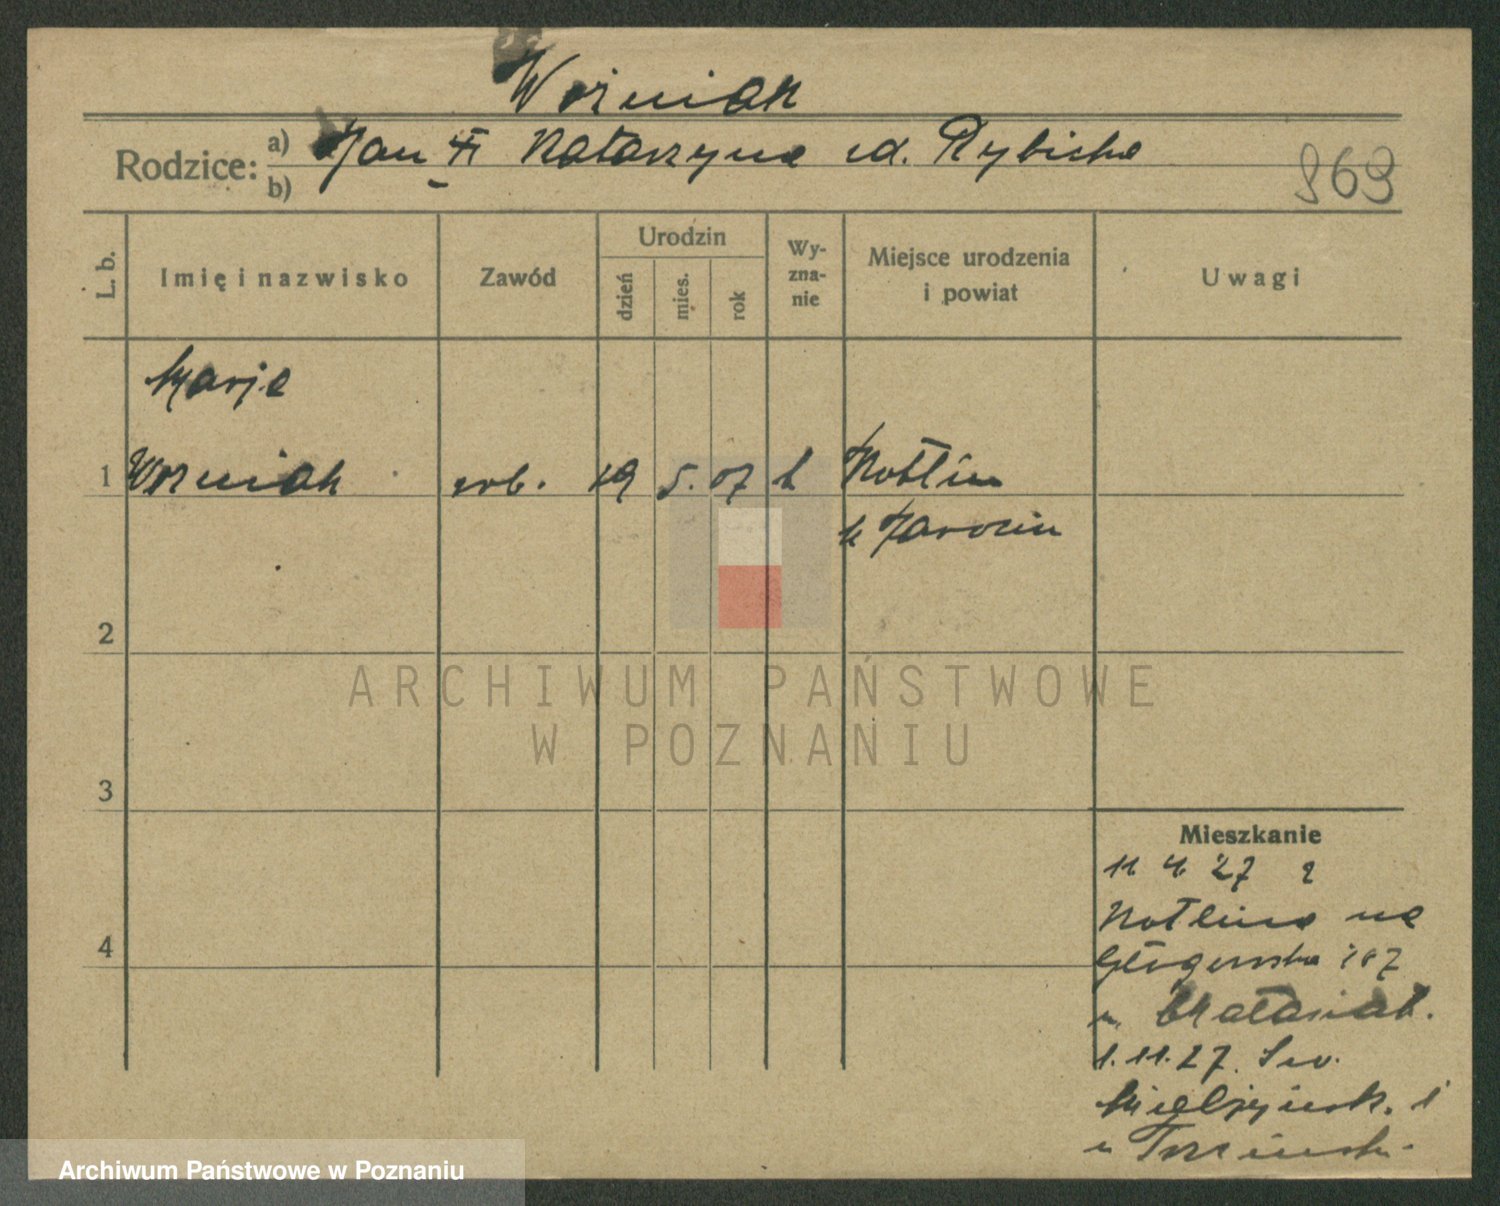 Woźniak
Rodzice: a) Jan Katarzyna zd. Rybicka
b)
869
L. b.
Imię i nazwisko
Zawód
Urodzin
dzień
mies.
rok
Wy-
zna-
nie
Miejsce urodzenia
i powiat
Uwagi
Marja
1 Woźniak rob. 19 5. 07 k Kotlin
Jarocin
2
3
4
Mieszkanie
11 4 27 z
Kotlina na
Głogowska 107
u
1.11.27. Sew.
Mielżyńsk. 1
u
ARCHIWUM PAŃSTWOWE
W POZNANIU
Archiwum Państwowe w Poznaniu